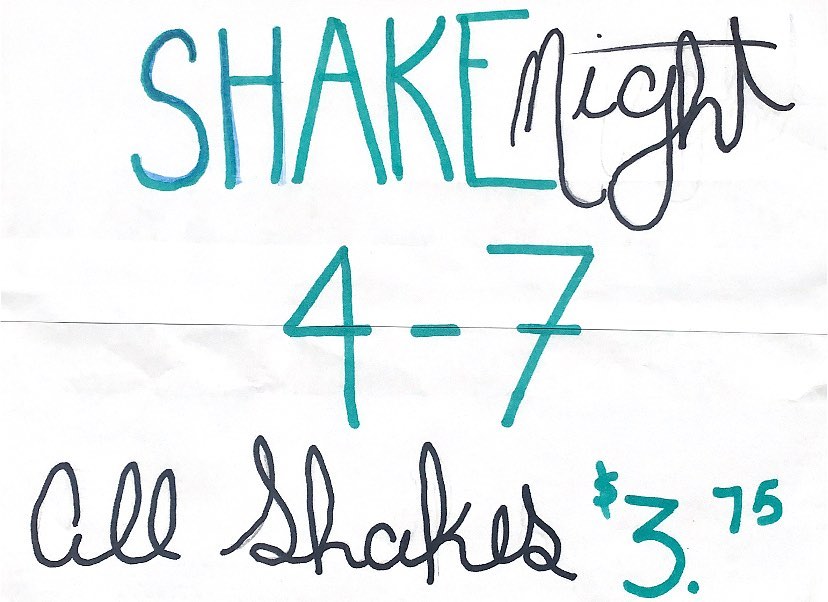 SHAKE Night
4-7
All Shakes $3.75